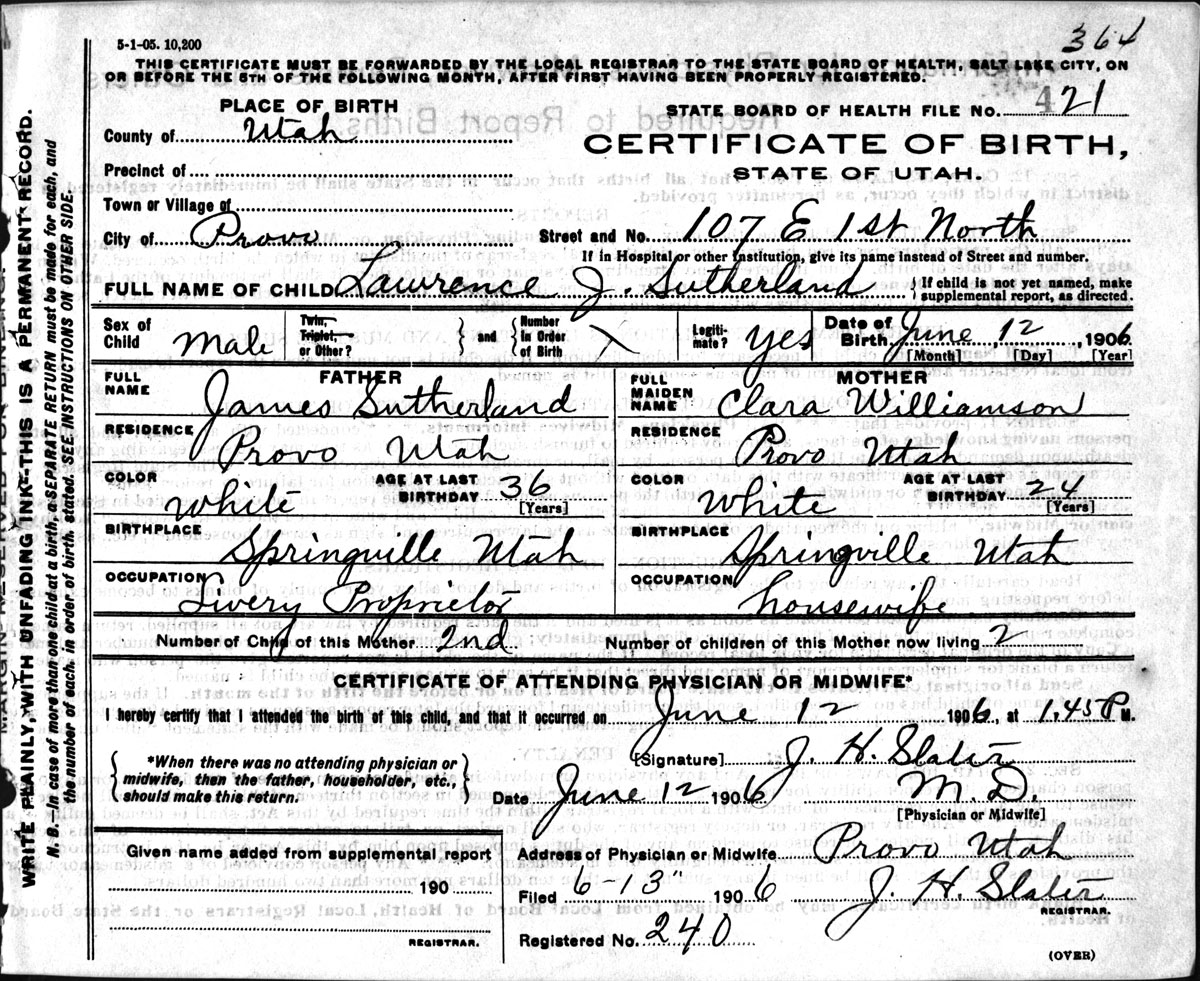 5-1-05. 10,200
364
THIS CERTIFICATE MUST BE FORWARDED BY THE LOCAL REGISTRAR TO THE STATE BOARD OF HEALTH, SALT LAKE CITY, ON
OR BEFORE THE 5TH OF THE FOLLOWING MONTH, AFTER FIRST HAVING BEEN PROPERLY REGISTERED.
PLACE OF BIRTH
STATE BOARD OF HEALTH FILE No. 421
County of Utah
CERTIFICATE OF BIRTH,
Precinct of
STATE OF UTAH.
Town or Village of
City of Provo Street and No. 107 E 1st North
If in Hospital or other Institution, give its name instead of Street and number.
FULL NAME OF CHILD Lawrence J. Sutherland { If child is not yet named, make
supplemental report, as directed.
Sex of Child Male Twin, Triplet, or Other? } and { Number in Order of Birth Legiti-mate? Yes Date of Birth June 12 1906
[Month] [Day] [Year]
FATHER MOTHER
FULL NAME James Sutherland FULL MAIDEN NAME Clara Williamson
RESIDENCE Provo Utah RESIDENCE Provo Utah
COLOR White AGE AT LAST BIRTHDAY 36 [Years] COLOR White AGE AT LAST BIRTHDAY 24 [Years]
BIRTHPLACE Springville Utah BIRTHPLACE Springville Utah
OCCUPATION Livery Proprietor OCCUPATION housewife
Number of Child of this Mother 2nd Number of children of this Mother now living 2
CERTIFICATE OF ATTENDING PHYSICIAN OR MIDWIFE*
I hereby certify that I attended the birth of this child, and that it occurred on June 12 1906, at 1.45 P M.
{ *When there was no attending physician or
midwife, then the father, householder, etc.,
should make this return. }
[Signature] J. H. Slater
Date June 12 1906 M. D.
[Physician or Midwife]
Given name added from supplemental report
Address of Physician or Midwife Provo Utah
190
Filed 6-13" 1906 J. H. Slater
REGISTRAR.
REGISTRAR.
Registered No. 240
(OVER)
WRITE PLAINLY, WITH UNFADING INK—THIS IS A PERMANENT RECORD.
N. B.—In case of more than one child at a birth, a SEPARATE RETURN must be made for each, and
the number of each, in order of birth, stated. SEE INSTRUCTIONS ON OTHER SIDE.